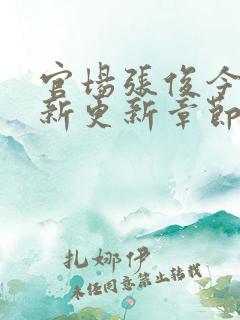 官場張俊今
新更新章節
扎娜伊
未经同意禁止转载